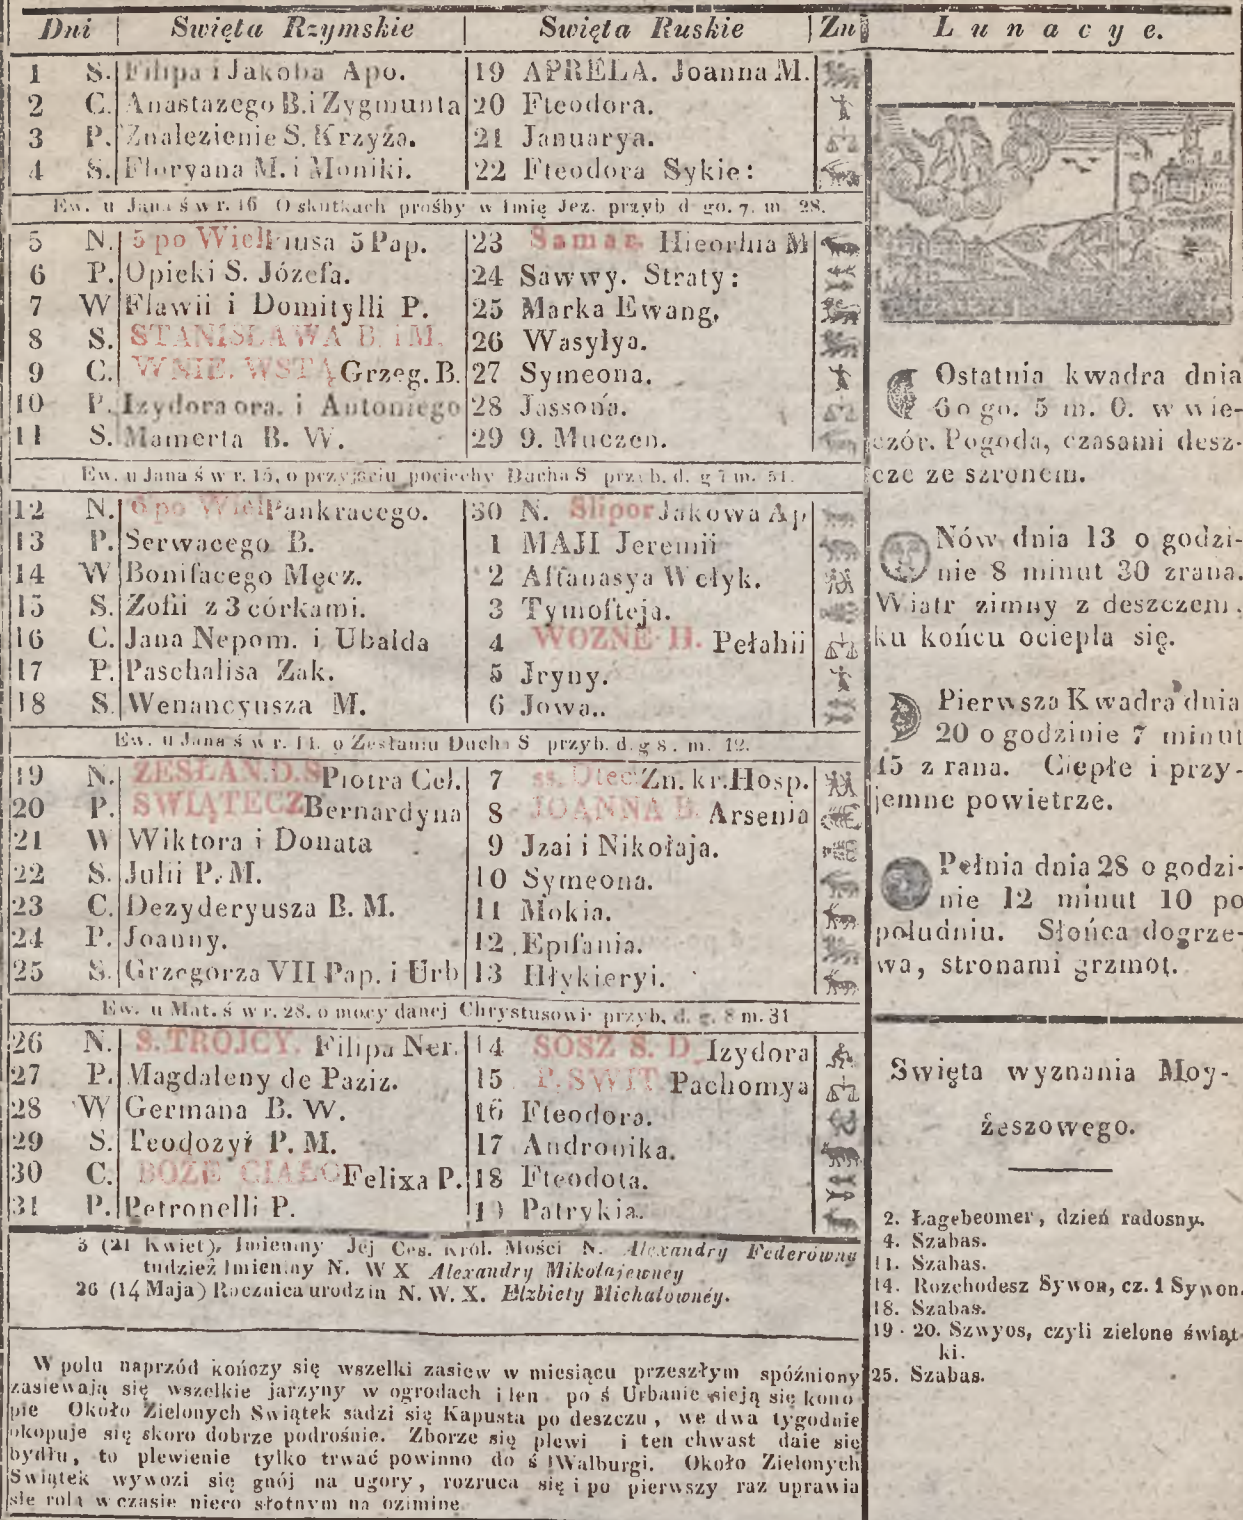 Dni Swięta Rzymskie Swięta Ruskie Zn
1 S. Filipa i Jakoba Apo. 19 APRELA. Joanna M.
2 C. Anastazego B. i Zygmunta 20 Fteodora.
3 P. Znalezienie S. Krzyża. 21 Januarya.
4 S. Floryana M. i Moniki. 22 Fteodora Sykie:
Ew. u Jana ś w r. 16 O skutkach prośby w Imię Jez. przyb d go. 7. m. 28.
5 N. 5 po Wiel Piusa 5 Pap. 23 Samar. M
6 P. Opieki S. Józefa. 24 Sawwy. Straty:
7 W Flawii i Domitylli P. 25 Marka Ewang,
8 S. STANISŁAWA B. i M. 26 Wasyłya.
9 C. WNIE. WSTĄ Grzeg. B. 27 Symeona.
10 P. Izydora ora. i Antoniego 28 Jassona.
11 S. Mamerta B. W. 29 9. Muczen.
Ew. u Jana ś w r. 15, o przyjściu pociechy Ducha S przyb. d. g 7 m. 51.
12 N. 6 po Wiel Pankracego. 30 N. Slipor Jakowa Ap
13 P. Serwacego B. 1 MAJI Jeremii
14 W Bonifacego Męcz. 2 Affanasya Wełyk.
15 S. Zofii z 3 córkami. 3 Tymofteja.
16 C. Jana Nepom. i Ubalda 4 WOZNE H. Pełahii
17 P. Paschalisa Zak. 5 Jryny.
18 S. Wenancyusza M. 6 Jowa..
Ew. u Jana ś w r. 14. o Zesłaniu Ducha S przyb. d. g 8. m. 12.
19 N. ZESŁAN. D. S Piotra Cel. 7 ss. Otec Zn. kr. Hosp.
20 P. SWIĄTECZ Bernardyna 8 JOANNA B. Arsenia
21 W Wiktora i Donata 9 Jzai i Nikołaja.
22 S. Julii P. M. 10 Symeona.
23 C. Dezyderyusza B. M. 11 Mokia.
24 P. Joanny. 12 Epifania.
25 S. Grzegorza VII Pap. i Urb 13 Hłykieryi.
Ew. u Mat. ś w r. 28. o mocy danej Chrystusowi przyb, d. g. 8 m. 31
26 N. S. TROJCY. Filipa Ner. 14 SOSZ S. D Izydora
27 P. Magdaleny de Paziz. 15 P. SWIT Pachomya
28 W Germana B. W. 16 Fteodora.
29 S. Teodozyi P. M. 17 Andronika.
30 C. BOŻE CIAŁO Felixa P. 18 Fteodota.
31 P. Petronelli P. 19 Patrykia.
3 (21 Kwiet). Imieniny Jej Ces. Król. Mości N. Alexandry Federówny
tudzież Imieniny N. W X Alexandry Mikołajewnéy
26 (14 Maja) Rocznica urodzin N. W. X. Elzbiety Michałownéy.
W polu naprzód kończy się wszelki zasiew w miesiącu przeszłym spóźniony
zasiewają się wszelkie jarzyny w ogrodach i len po ś Urbanie sieją się kono
pie Około Zielonych Swiątek sadzi się Kapusta po deszczu, we dwa tygodnie
okopuje się skoro dobrze podrośnie. Zborze się plewi i ten chwast daie się
bydłu, to plewienie tylko trwać powinno do ś Walburgi. Około Zielonych
Swiątek wywozi się gnój na ugory, rozruca się i po pierwszy raz uprawia
sie rola w czasie nieco słotnym na ozimine
Lunacye.
Ostatnia kwadra dnia
6 o go. 5 m. 0. w wie-
czór. Pogoda, czasami desz-
cze ze szronem.
Nów dnia 13 o godzi-
nie 8 minut 30 zrana.
Wiatr zimny z deszczem.
ku końcu ociepla się.
Pierwsza Kwadra dnia
20 o godzinie 7 minut
15 z rana. Ciepłe i przy-
jemne powietrze.
Pełnia dnia 28 o godzi-
nie 12 minut 10 po
południu. Słońca dogrze-
wa, stronami grzmot.
Swięta wyznania Moy-
żeszowego.
2. Łagebeomer, dzień radosny.
4. Szabas.
11. Szabas.
14. Rozchodesz Sywon, cz. 1 Sywon.
18. Szabas.
19 - 20. Szwyos, czyli zielone świąt-
ki.
25. Szabas.